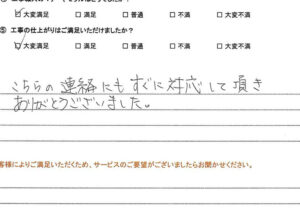 ☑ 大変満足 □ 満足 □ 普通 □ 不満 □ 大変不満
⑤ 工事の仕上がりはご満足いただけましたか?
☑ 大変満足 □ 満足 □ 普通 □ 不満 □ 大変不満
こちらの連絡にもすぐに対応して頂き
ありがとうございました。
客様によりご満足いただくため、サービスのご要望がございましたらお聞かせください。